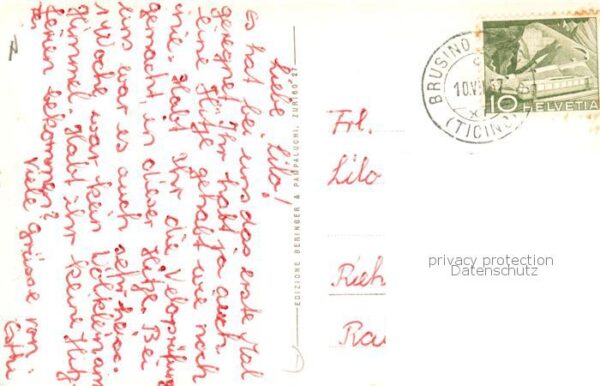 Liebe Lilo!
es hat bei uns das erste Mal
geregnet. Ihr habt ja auch
eine Hitze gehabt wie noch
nie. Habt ihr die Veloprüfung
gemacht, in dieser Hitze. Bei
uns war es auch sehr heiss.
1 Woche war kein Wölklein am
Himmel. Habt ihr keine Hitz-
ferien bekommen?
Viele Grüsse von
Edizione Beringer & Pampaluchi, Zürich
BRUSINO
10.VII.57
(TICINO)
10 HELVETIA
Frl.
Lilo
Rieh
privacy protection
Datenschutz